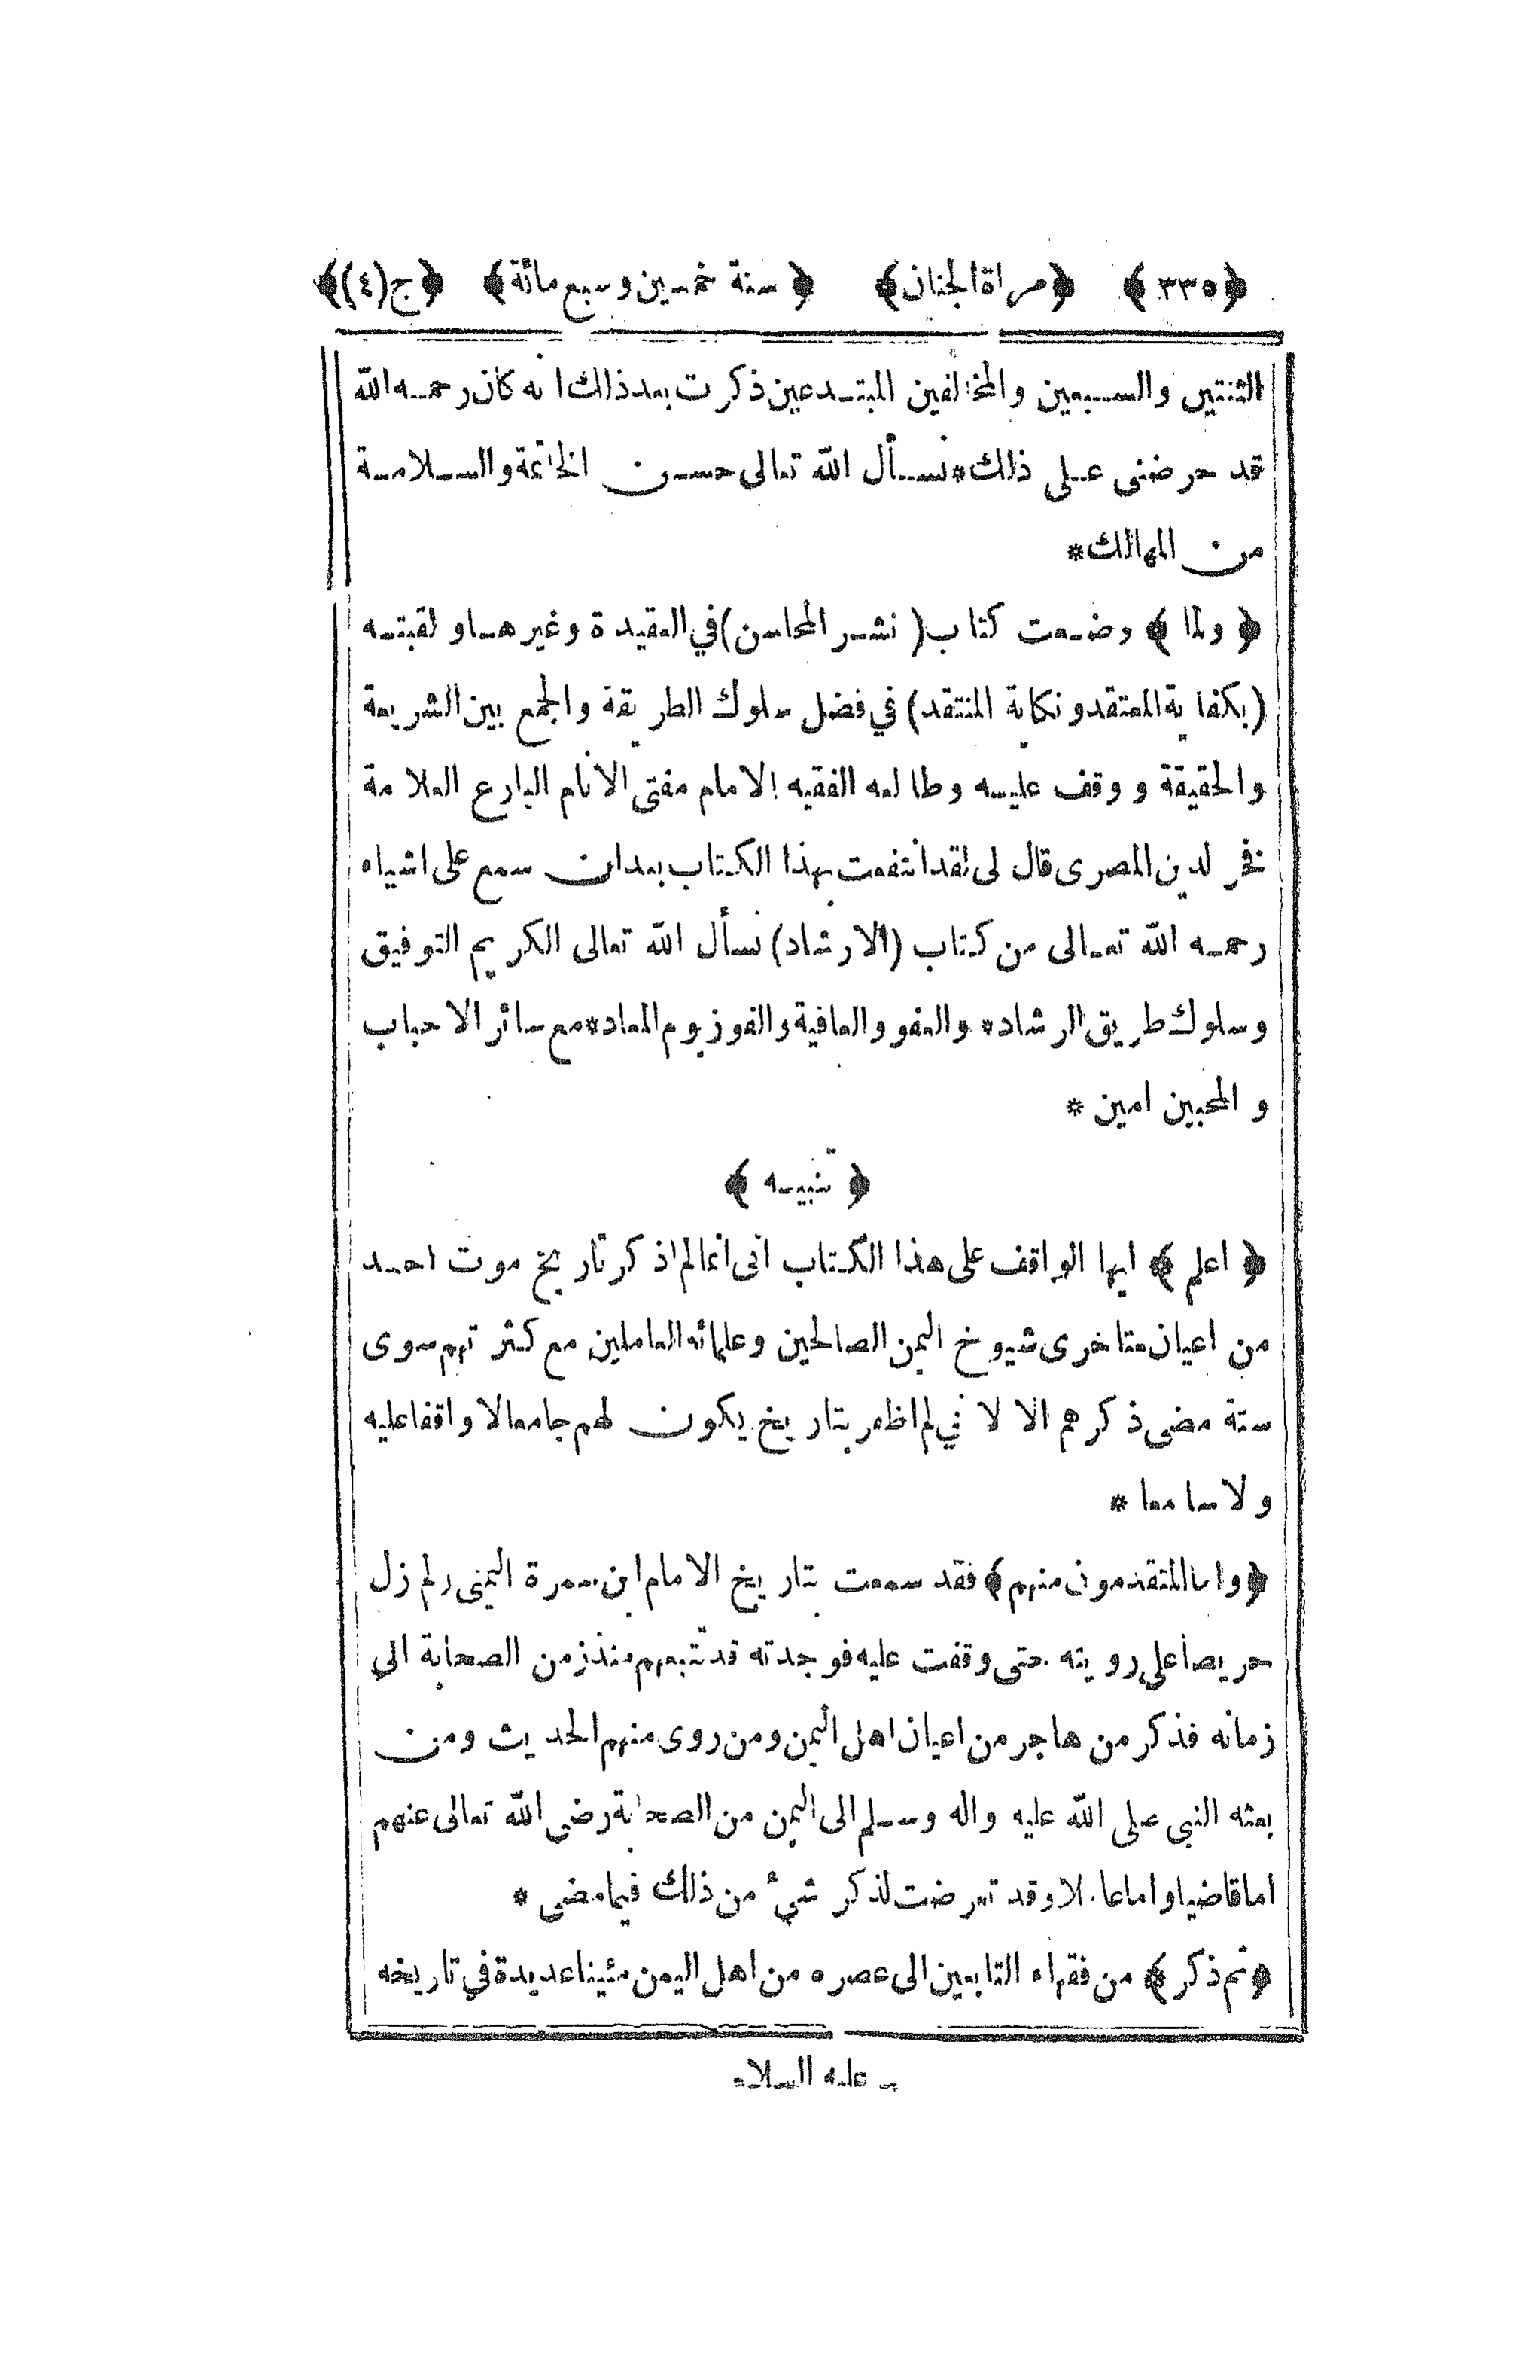 ﴿٣٣٥﴾ ﴿مراة الجنان﴾ ﴿سنة خمسين وسبع مائة﴾ ﴿ج(٤)﴾
الثنتين والسبعين والمخالفين المبتدعين ذكرت بعد ذلك انه كان رحمه الله
قد حرضنى على ذلك*نسأل الله تعالى حسن الخاتمة والسلامة
من المهالك*
﴿ولما﴾ وضعت كتاب (نشر المحاسن) في العقيدة وغيرها ولقبته
(بكفاية المعتقد ونكاية المنتقد) في فضل سلوك الطريقة والجمع بين الشريعة
والحقيقة ووقف عليه وطالعه الفقيه الامام مفتى الانام البارع العلامة
فخر لدين المصرى قال لى لقد انتفعت بهذا الكتاب بعد ان سمع على اشياء
رحمه الله تعالى من كتاب (الارشاد) نسأل الله تعالى الكريم التوفيق
وسلوك طريق الرشاد* والعفو والعافية والفوز يوم المعاد*مع سائر الاحباب
والمحبين امين *
﴿تنبيه﴾
﴿اعلم﴾ ايها الواقف على هذا الكتاب انى انما لم اذكر تاريخ موت احد
من اعيان متاخرى شيوخ اليمن الصالحين وعلمائه العاملين مع كثرتهم سوى
ستة مضى ذكرهم الا لا ني لم اظفر بتاريخ يكون لهم جامعا لا واقفا عليه
ولا سامعا *
﴿واما المتقدمون منهم﴾ فقد سمعت بتاريخ الامام ابن سمرة اليمنى ولم زل
حريصا على رويته حتى وقفت عليه فوجدته قد تتبعهم منذ زمن الصحابة الى
زمانه فذكر من هاجر من اعيان اهل اليمن ومن روى منهم الحديث ومن
بعثه النبى صلى الله عليه واله وسلم الى اليمن من الصحابة رضي الله تعالى عنهم
اما قاضيا واما عاملا وقد تعرضت لذكر شيٴ من ذلك فيما مضى *
﴿ثم ذكر﴾ من فقهاء التابعين الى عصره من اهل اليمن مئينا عديدة في تاريخه
عليه السلام